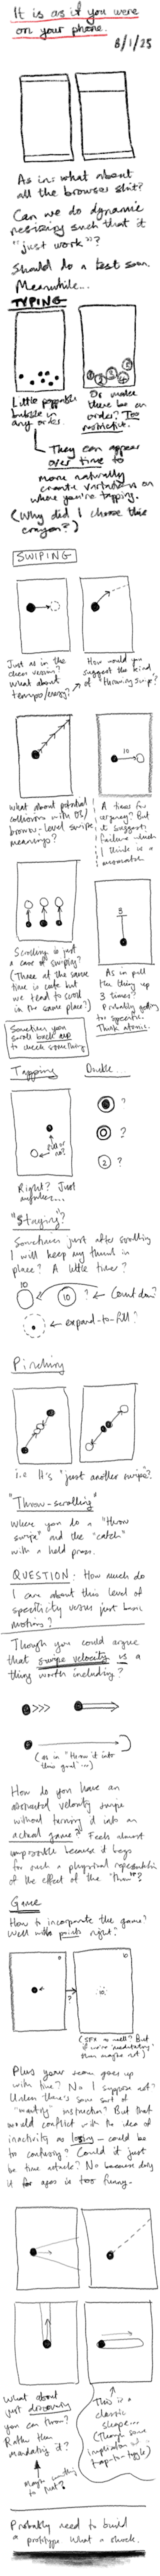 It is as if you were
on your phone.
8/1/25
As in: what about
all the browser shit?
Can we do dynamic
resizing such that it
"just work"?
Should do a test soon.
Meanwhile...
TYPING
Little poppable
bubbles in
any order.
Or would
there be an
order? Too
restrictive.
They can appear
over time to
more naturally
create variations on
where you're tapping.
(Why did I choose this
crayon?)
SWIPING
Just as in the
chess version?
What about
tempo/
How would you
suggest the kind
of "throwing swipe"?
What about potential
collision with OS/
browser-level swipe
meanings?
10
A timer for
urgency? But
it suggests
failure which
I think is a
mismatch
Scrolling is just
a case of swiping?
(Three at the same
time is cute but
we tend to scroll
in the same place?)
Sometimes you
scroll back up
to check something
3
As in pull
the thing up
3 times?
Probably getting
too specific.
Think atomic.
Tapping
Double...
out or
no?
?
?
2 ?
Right? Just
anywhere...
"Staying"?
Sometimes just after scrolling
I will keep my thumb in
place? A little timer?
10
10
? Count down?
expand-to-fill?
Pinching
i.e. It's "just another swipe"?
"Throw-scrolling"
Where you do a "throw
swipe" and the "catch"
with a held press.
QUESTION: How much do
I care about this level of
specificity versus just basic
motions?
Though you could argue
that swipe velocity is a
thing worth including?
(as in "throw it into
this goal"...)
How do you have an
abstracted velocity swipe
without turning it into an
actual game? Feels almost
impossible because it begs
for such a physical representation
of the effect of the "throw"?
Game
How to incorporate the game?
Well with points right?
0
?
10
10
(SFX as well? But
if we're 'meditating'
then maybe not)
Plus your score goes up
with time? No I suppose not?
Unless there's some sort of
"waiting" instruction? But that
would conflict with the idea of
inactivity as losing - could be
too confusing? Could it just
be time attack? No because doing
it for ages is too funny.
What about
just discovering
you can throw?
Rather than
mandating it?
Maybe nothing
to hint?
This is a
classic
shape...
(Though some
implication of
tap-to-toggle)
Probably need to build
a prototype. What a shock.